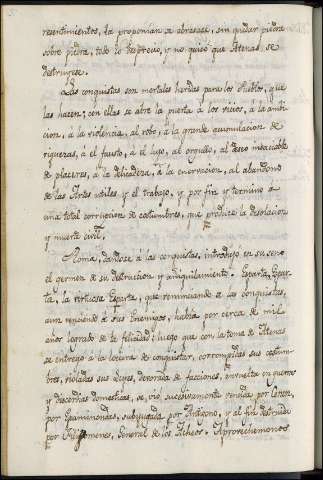 resentimientos, la proponian se abrasase, sin quedar piedra
sobre piedra, todo lo despreció, y no quiso que Atenas se
destruyese.
Las conquistas son mortales heridas para los Pueblos, que
las hacen; con ellas se abre la puerta á los vicios, á la ambi-
cion, á la violencia, al robo, á la grande acumulacion de
riquezas, á el fausto, á el lujo, al orgullo, al deseo insaciable
de placeres, á la delicadeza, á la enervacion, al abandono
de las Artes utiles, y el trabajo, y por fin y termino á
una total corrupcion de costumbres, que produce la desolacion
y muerte civil.
Roma, dandose á las conquistas, introdujo en su seno
el germen de su destruccion y aniquilamiento. Esparta, Espar-
ta, la virtuosa Esparta, que renunciando de las conquistas,
aun venciendo á sus Enemigos, habia por cerca de mil
años logrado de felicidad; luego que con la toma de Atenas
se entregó á la locura de conquistar, corrompidas sus costum-
bres, violadas sus Leyes, devorada de facciones, envuelta en guerras
y discordias domesticas, se vió sucesivamente vencida por
por Epaminondas, subyugada por Antigono, y al fin destruida
por Filopomenes, General de los Acheos. Aprovechemonos